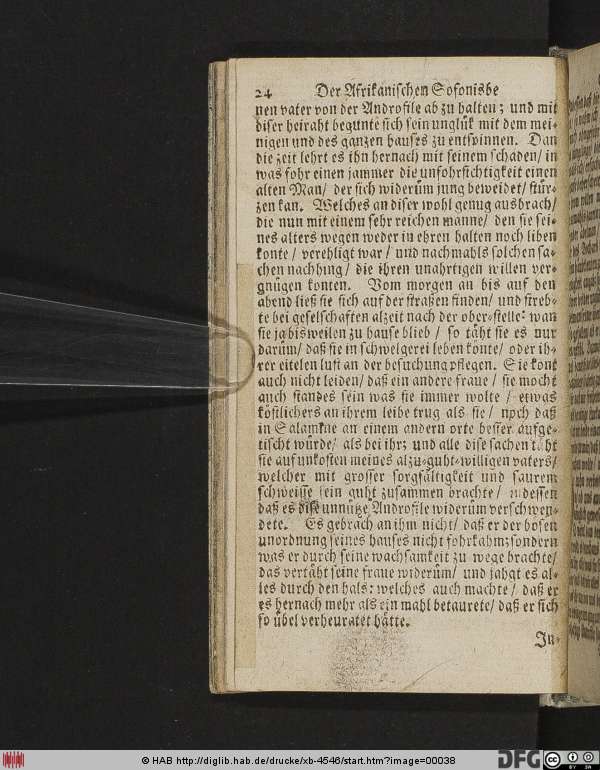 24 Der Afrikanischen Sofonisbe
nen vater von der Androfile ab zu halten; und mit
diser heiraht begunte sich sein unglük mit dem mei-
nigen und des ganzen hauses zu entspinnen. Dan
die zeit lehrt es ihn hernach mit seinem schaden/ in
was fohr einen jammer die unfohrsichtigkeit einen
alten Man/ der sich widerüm jung beweibet/ stür-
zen kan. Welches an diser wohl genug ausbrach/
die nun mit einem sehr reichen manne/ den sie sei-
nes alters wegen weder in ehren halten noch liben
konte/ verehligt war/ und nachmahls solchen sa-
chen nachhing/ die ihren unahrtigen willen ver-
gnügen konten. Vom morgen an bis auf den
abend ließ sie sich auf der straßen finden/ und streb-
te bei geselschaften alzeit nach der ober-stelle: wan
sie ja bisweilen zu hause blieb/ so täht sie es nur
darüm/ daß sie in schwelgerei leben könte/ oder ih-
rer eitelen lust an der besuchung pflegen. Sie kont
auch nicht leiden/ daß ein andere fraue/ sie mocht
auch standes sein was sie immer wolte/ etwas
köstlichers an ihrem leibe trug als sie/ noch daß
in Salamine an einem andern orte besser aufge-
tischt würde/ als bei ihr; und alle dise sachen täht
sie auf unkosten meines alzu-guht-willigen vaters/
welcher mit grosser sorgfältigkeit und saurem
schweisse sein guht zusammen brachte/ indessen
daß es dise unnütze Androfile widerüm verschwen-
dete. Es gebrach an ihm nicht/ daß er der bösen
unordnung seines hauses nicht fohrkahm; sondern
was er durch seine wachsamkeit zu wege brachte/
das vertäht seine fraue widerüm/ und jahgt es al-
les durch den hals: welches auch machte/ daß er
es hernach mehr als ein mahl betaurete/ daß er sich
so übel verheuratet hätte.
In-
© HAB http://diglib.hab.de/drucke/xb-4546/start.htm?image=00038
DFG